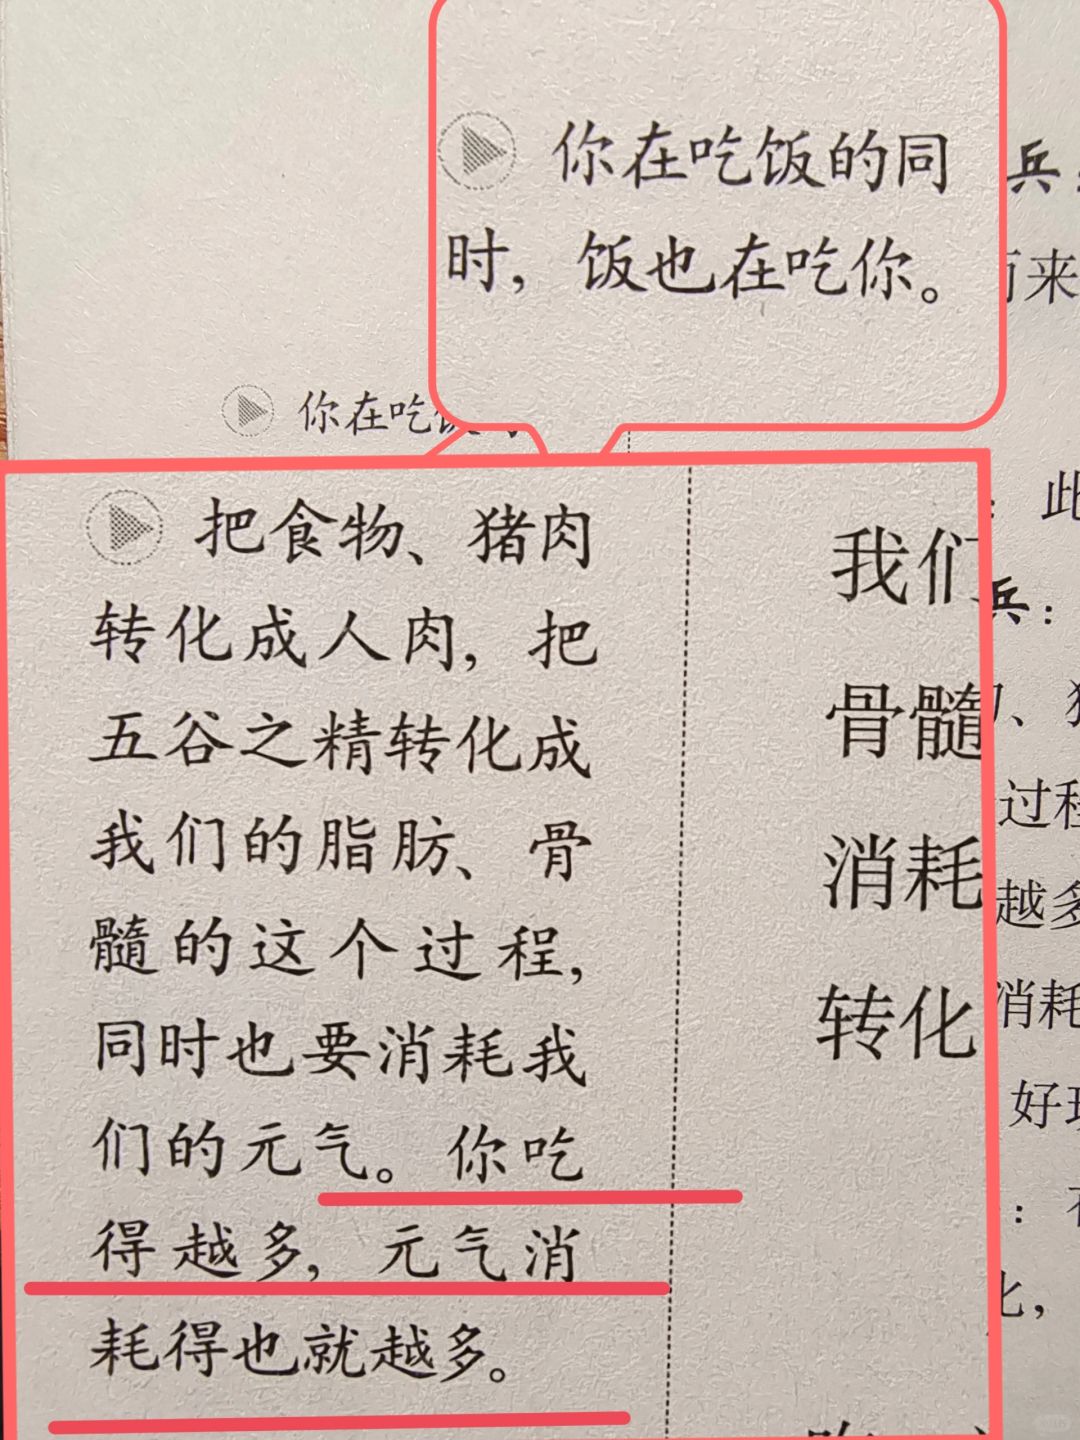 你在吃饭的同
时，饭也在吃你。
兵
而来
你在吃饭
把食物、猪肉
转化成人肉，把
五谷之精转化成
我们的脂肪、骨
髓的这个过程，
同时也要消耗我
们的元气。你吃
得越多，元气消
耗得也就越多。
我们
骨髓
消耗
转化
：此
兵：
过程
越多
消耗
好
化，